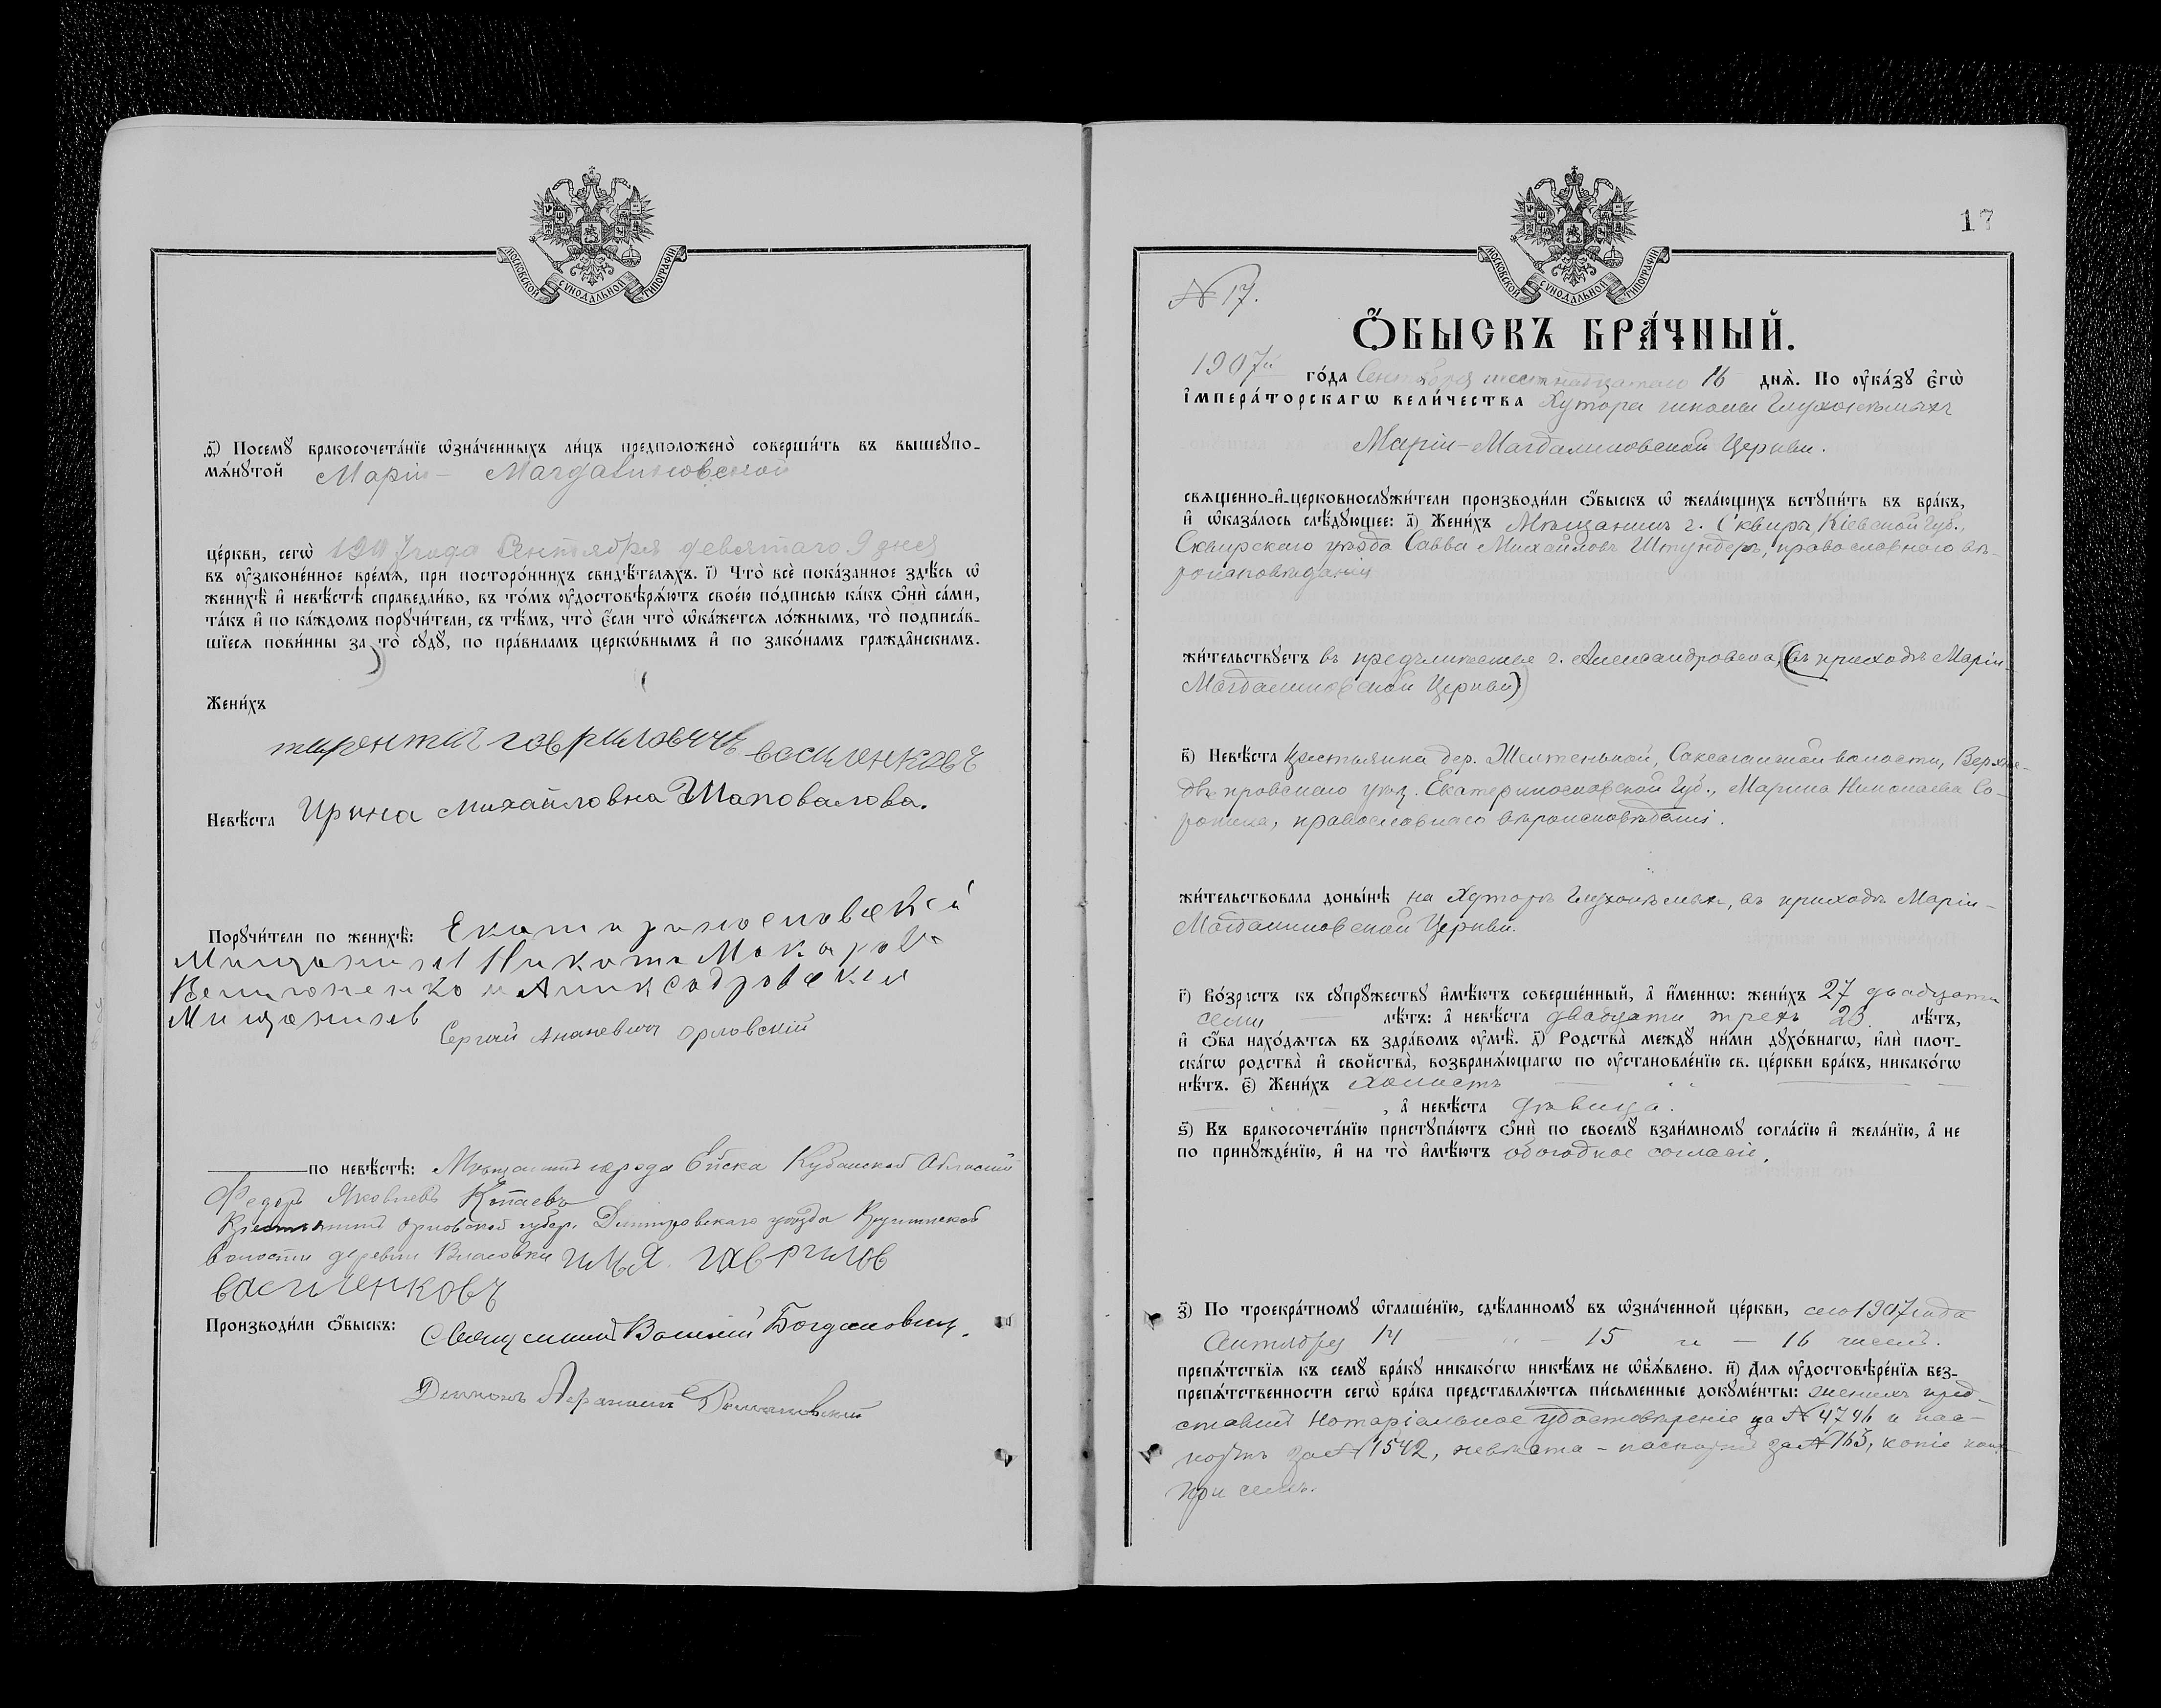 МОСКОВСКОЙ СѴНОДАЛЬНОЙ ТИПОГРАФІИ
ѳ҃) Посемꙋ̀ бракосочета́нїе ѡ҆зна́ченныхъ ли́цъ предположено̀ соверши́ть въ вышеꙋпо-
мѧ́нꙋтой Марiи- Магдалиновской
це́ркви, сегѡ̀ 1907 года Сентября девятаго 9 дня
въ ᲂу҆законе́нное вре́мѧ, при посторо́ннихъ свидѣ́телѧхъ. і҃) Что̀ всѐ пока́занное здѣ́сь ѡ҆
женихѣ̀ и҆ невѣ́стѣ справедли́во, въ то́мъ ᲂу҆достовѣрѧ́ютъ свое́ю по́дписью ка́къ ѻ҆нѝ са́ми,
та́къ и҆ по ка́ждомъ порꙋчи́тели, съ тѣ́мъ, что̀ є҆́сли что̀ ѡ҆ка́жетсѧ ло́жнымъ, то̀ подписа́в-
шїесѧ пови́нны за то̀ сꙋдꙋ̀, по пра́виламъ церкѡ́внымъ и҆ по зако́намъ гражда̑нскимъ.
Жени́хъ
тирентии говриловичъ василенковъ
Невѣ́ста Ирина Михайловна Шаповалова.
Порꙋчи́тели по женихѣ̀: Екатиринославскй
Мищанинъ Никита Макаров
и Аликсадровскии
Мищанинъ
Сергий Ананевичъ Орловскій
по невѣ́стѣ: Мѣщанинъ города Ейска Кубанской Области
Федоръ Яковлевъ Копаевъ
Крестьянинъ Орловской губер. Дмитровскаго уѣзда
волости деревни Власовки гавриилов
василенковъ
Производи́ли ѻ҆́быскъ: Священникъ Василій Богдановичъ.
Дьяконъ
17
МОСКОВСКОЙ СѴНОДАЛЬНОЙ ТИПОГРАФІИ
N 17.
Ѻ҆́БЫСКЪ БРА́ЧНЫЙ.
1907й го́да Сентября шестнадцатаго 16 днѧ̀. По ᲂу҆ка́зꙋ є҆гѡ̀
і҆мпера́торскагѡ вели́чества Хутора школы Глухонѣмыхъ
Марiи-Магдалиновской Церкви.
свѧщенно-и҆-церковнослꙋжи́тели производи́ли ѻ҆́быскъ ѡ҆ жела́ющихъ встꙋпи́ть въ бра́къ,
и҆ ѡ҆каза́лось слѣ́дꙋющее: а҃) Жени́хъ Мѣщанинъ г. Сквиръ, Кіевской Губ.,
Сквирскаго уѣзда Савва Михайловъ Штундеръ, православнаго вѣ-
роисповѣданія
жи́тельствꙋетъ въ предмѣстье г. Александровска, (въ приходѣ Марiи-
Магдалиновской Церкви)
в҃) Невѣ́ста Крестьянка дер. Желтенькой, Саксаганской волости, Верхне-
днѣпровскаго уѣз. Екатеринославской Губ., Марина Николаева Со-
рокина, православнаго вѣроисповѣданія.
жи́тельствовала доны́нѣ на Хуторѣ Глухонѣмыхъ, въ приходѣ Марiи-
Магдалиновской Церкви.
г҃) Во́зрастъ къ сꙋпрꙋ́жествꙋ и҆мѣ́ютъ соверше́нный, а҆ и҆́меннѡ: жени́хъ 27 двадцати
семи лѣ́тъ: а҆ невѣ́ста двадцати трехъ 23. лѣ́тъ,
и҆ ѻ҆́ба нахо́дѧтсѧ въ здра́вомъ ᲂу҆мѣ̀. д҃) Родства̀ междꙋ ни́ми дꙋхо́внагѡ, и҆лѝ плот-
ска́гѡ родства̀ и҆ свойства̀, возбранѧ́ющагѡ по ᲂу҆становле́нїю св. це́ркви бра́къ, никако́гѡ
нѣ́тъ. є҃) Жени́хъ холостъ
, а҆ невѣ́ста дѣвица.
ѕ҃) Къ бракосочета́нїю пристꙋпа́ютъ ѻ҆нѝ по своемꙋ̀ взаи́мномꙋ согла́сїю и҆ жела́нїю, а҆ не
по принꙋжде́нїю, и҆ на то̀ и҆мѣ́ютъ обоюдное согласіе.
з҃) По троекра́тномꙋ ѡ҆глаше́нїю, сдѣ́ланномꙋ въ ѡ҆зна́ченной це́ркви, сего 1907 года
Сентября 14 - " - 15 и - 16 чиселъ.
препѧ́тствїѧ къ семꙋ̀ бра́кꙋ никако́гѡ никѣ́мъ не ѡ҆б̾ѧ́влено. и҃) Длѧ ᲂу҆достовѣре́нїѧ без-
препѧ́тственности сегѡ̀ бра́ка представлѧ́ютсѧ пи́сьменные докꙋме́нты: женихъ пред-
ставилъ Нотаріальное удостовѣреніе за N 4796 и пас-
портъ за N 1542, невѣста - паспортъ за N 163, копіе
при семъ.